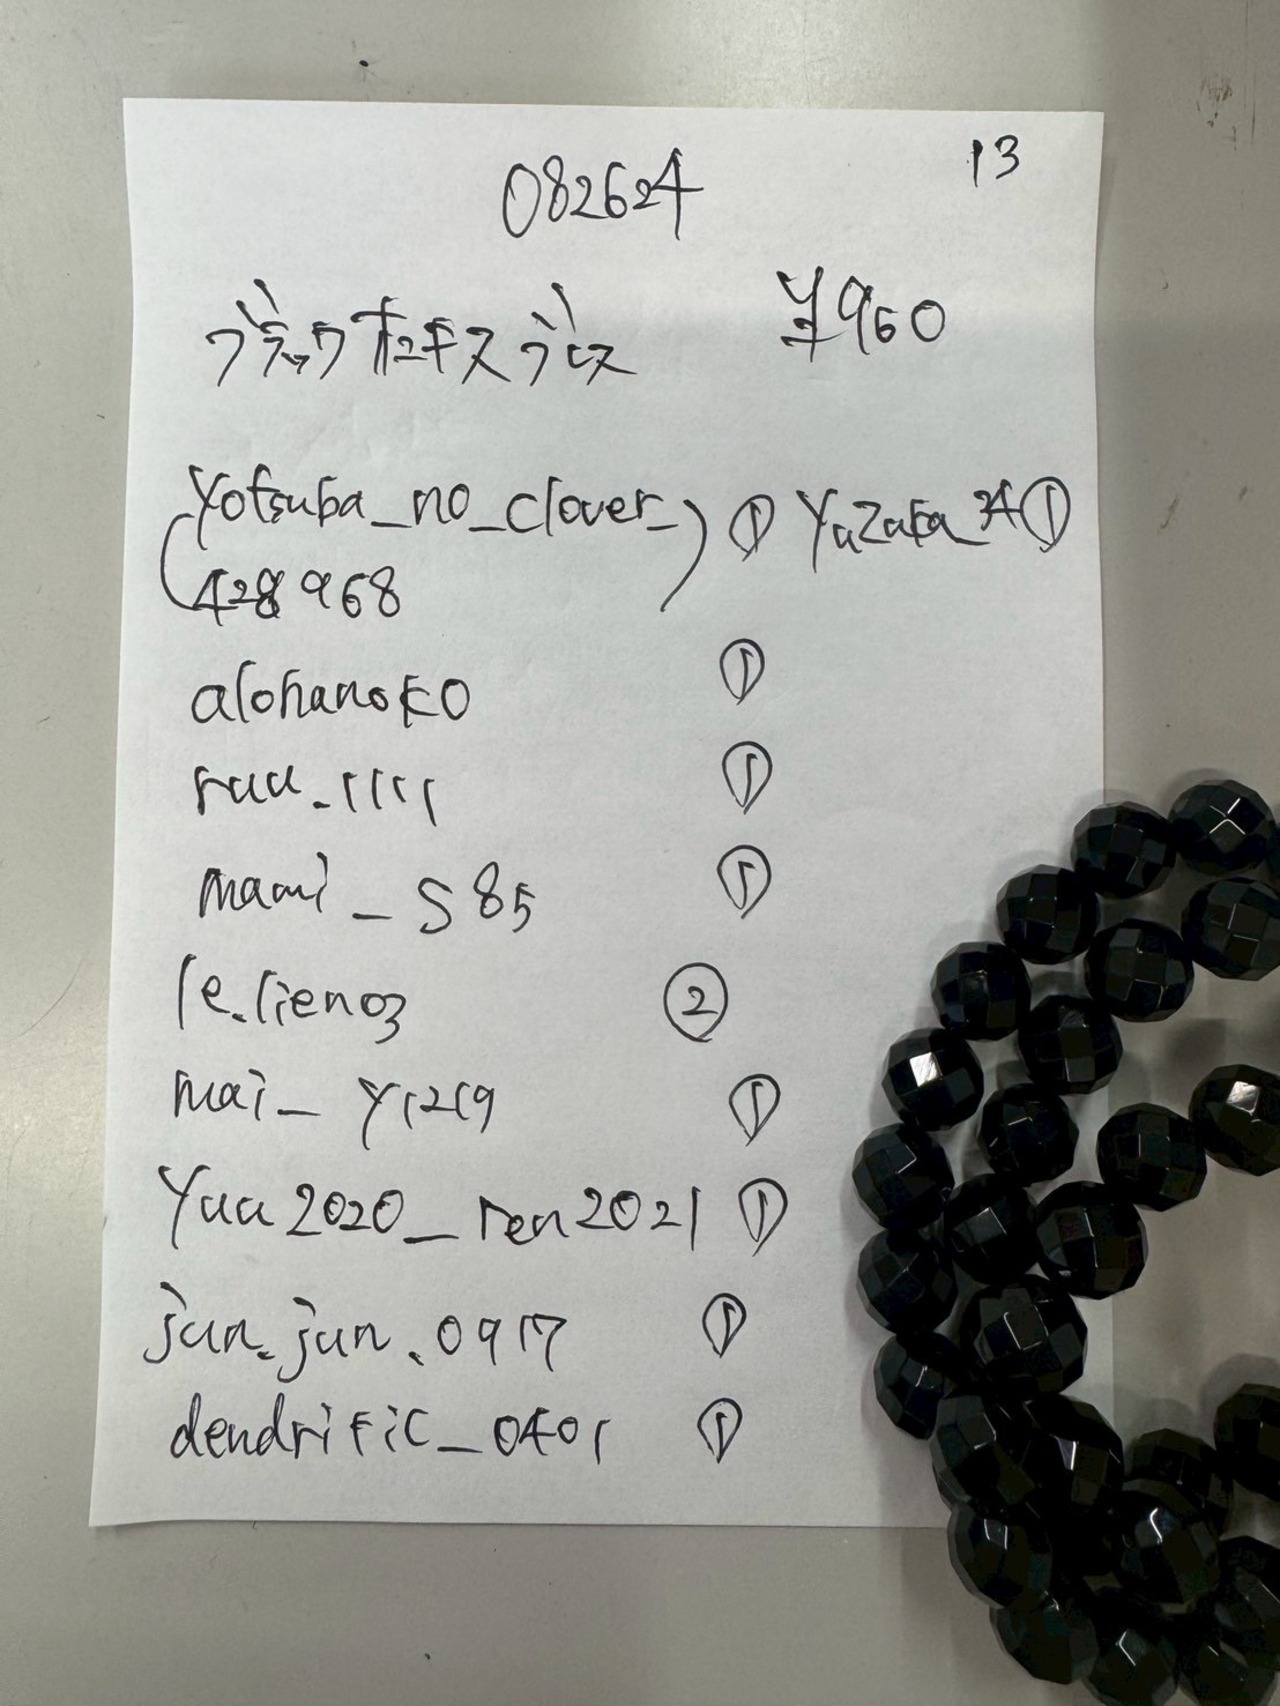 082624 13
ブラックオニキスブレス ¥960
yotsuba_no_clover_ ① yuzuka_34 ①
428968
alohanoko ①
ruu_1111 ①
mami_s85 ①
le.lien03 ②
mai_y1219 ①
yuu2020_ren2021 ①
jun.jun.0917 ①
dendrific_0401 ①